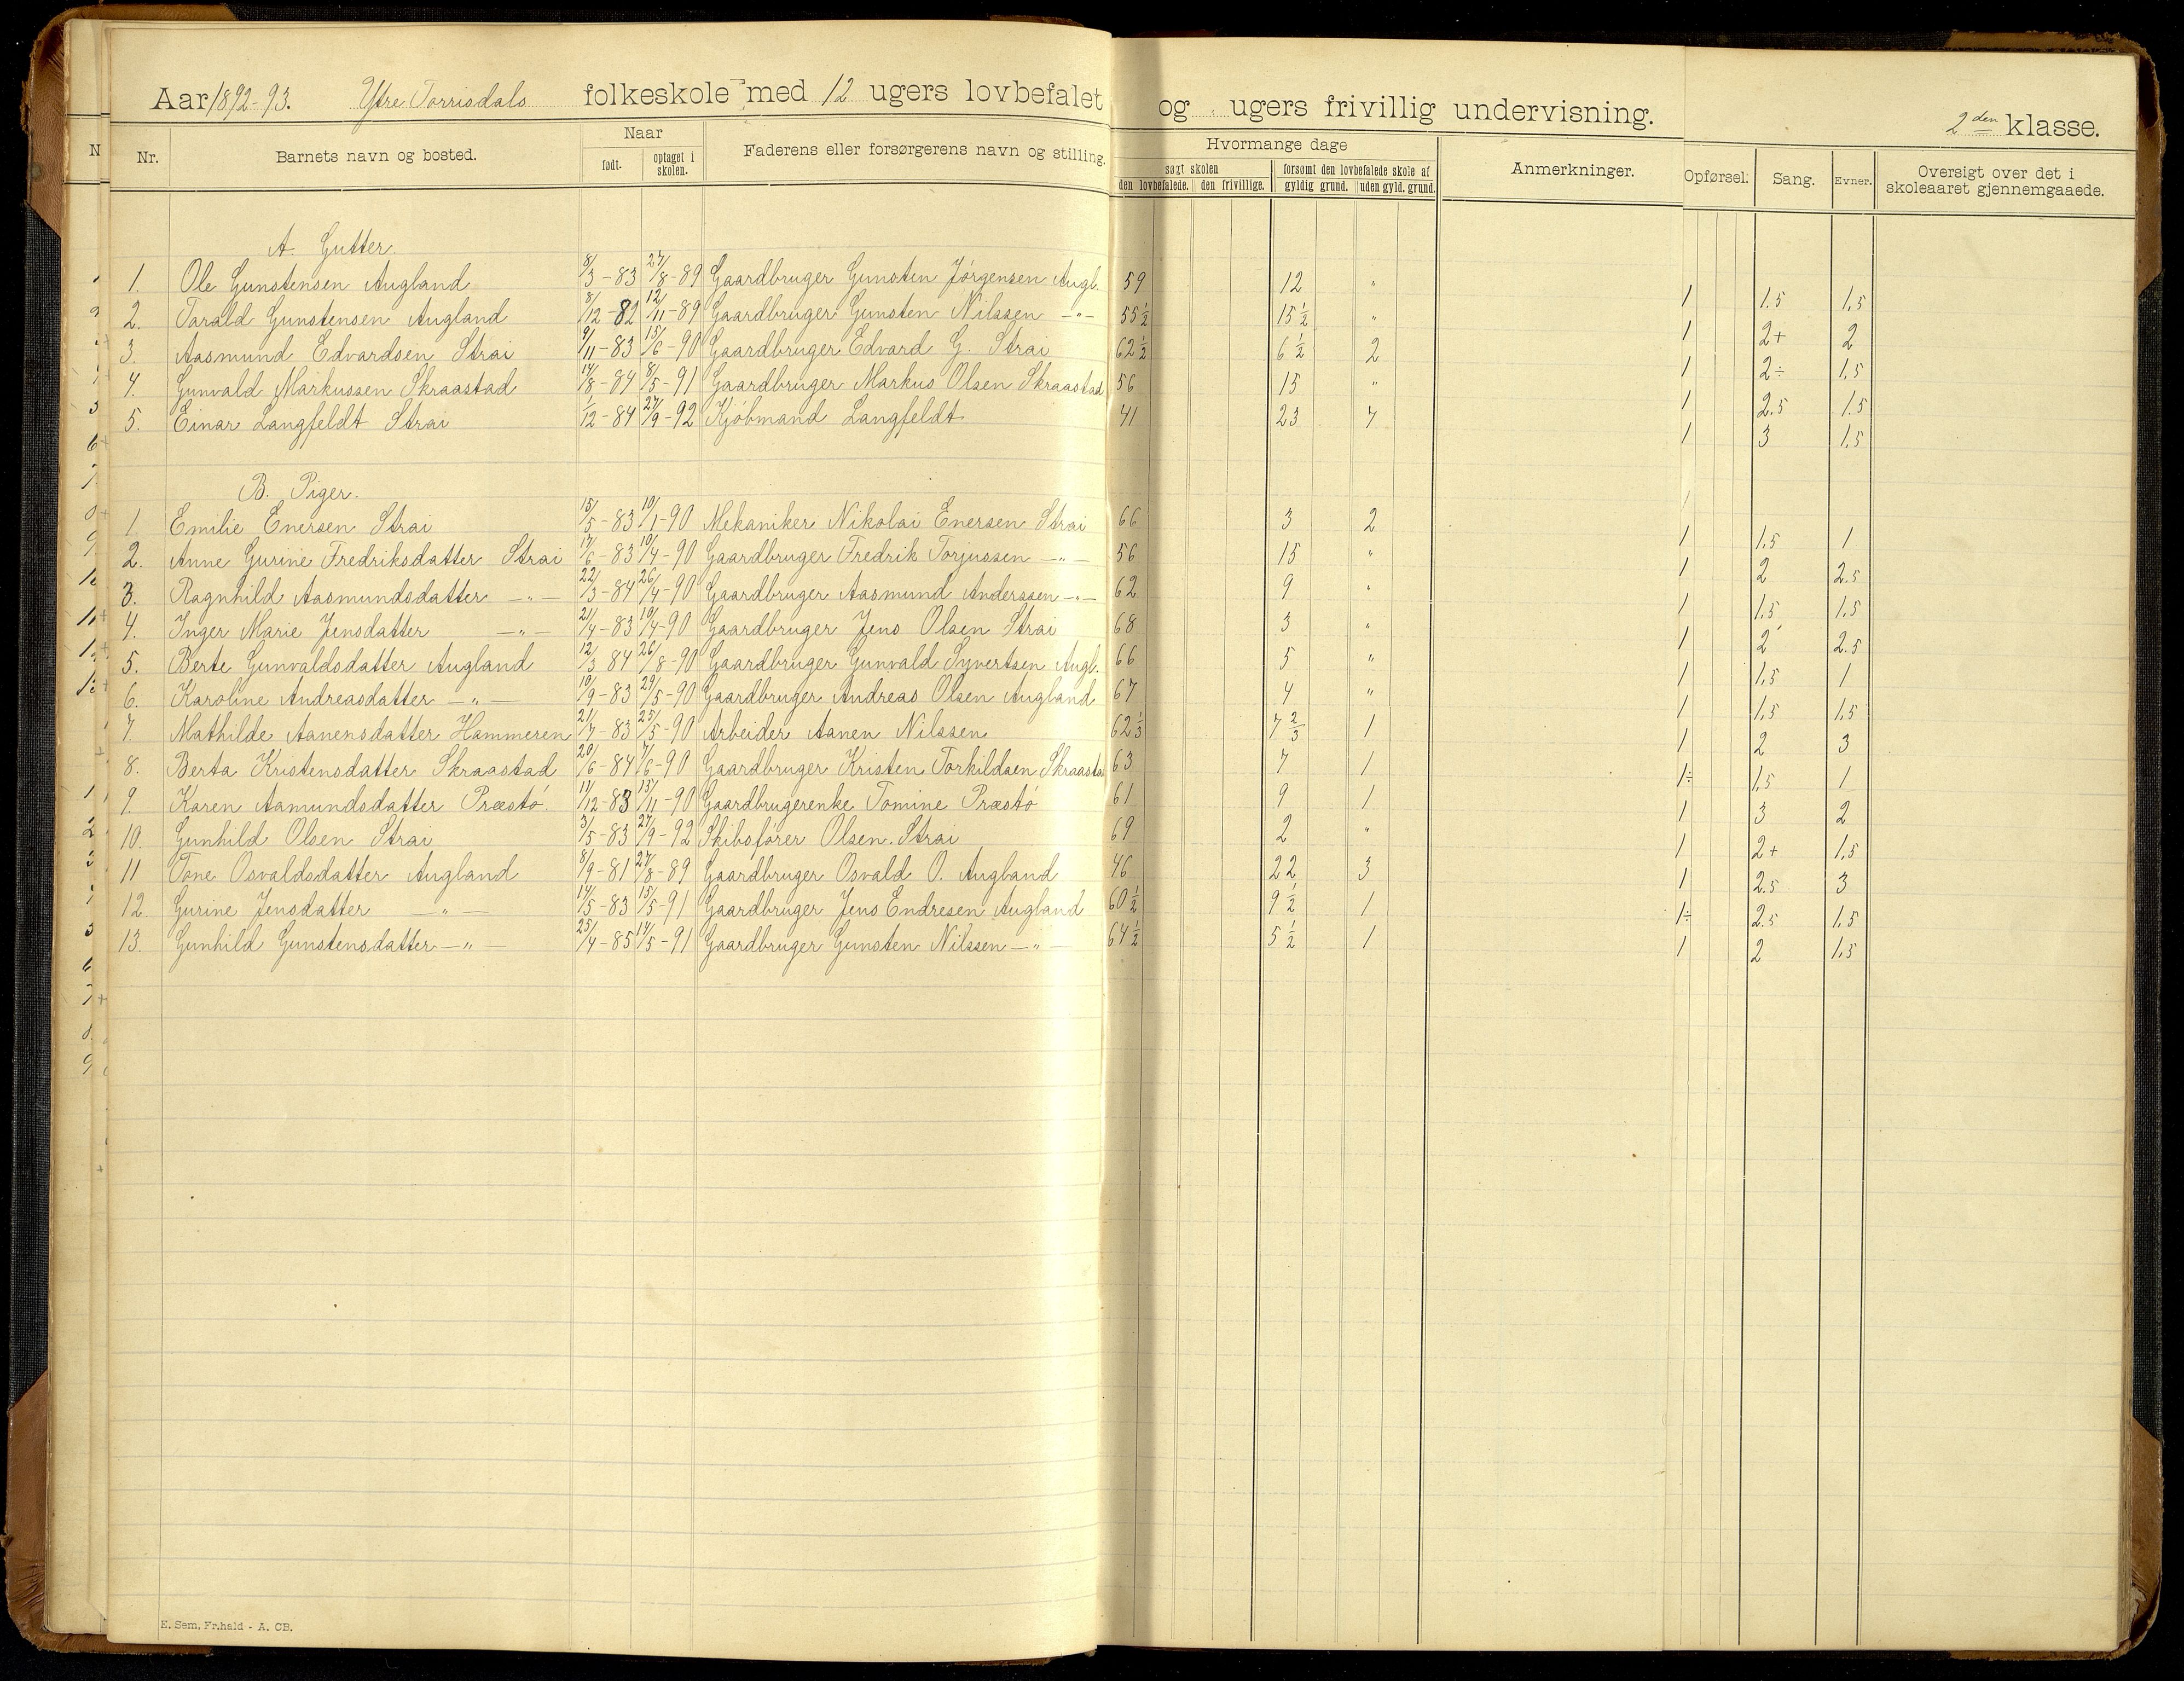 Aar 1892-93. Ytre Torrisdals folkeskole med 12 ugers lovbefalet og ugers frivillig undervisning. 2den klasse.
Nr. Barnets navn og bosted. Naar født. optaget i skolen. Faderens eller forsørgerens navn og stilling. Hvormange dage søgt skolen den lovbefalede. den frivillige. forsømt den lovbefalede skole af gyldig grund. uden gyld. grund. Anmerkninger. Opførsel. Sang. Evner. Oversigt over det i skoleaaret gjennemgaaede.
A. Gutter.
1. Ole Gunstensen Augland 8/3-83 27/8-89 Gaardbruger Gunsten Jörgensen Augl. 59 12 " 1 1.5 1,5
2. Tarald Gunstensen Augland 8/12-82 12/11-89 Gaardbruger Gunsten Nilssen -"- 55 1/2 15 1/2 " 1 2+ 2
3. Aasmund Edvardsen Strai 9/11-83 15/6-90 Gaardbruger Edvard G. Strai 62 1/2 6 1/2 2 1 2÷ 1,5
4. Gunvald Markussen Skraastad 14/8-84 8/5-91 Gaardbruger Markus Olsen Skraastad 56 15 " 1 2.5 1.5
5. Einar Langfeldt Strai 1/12-84 27/9-92 Kjöbmand Langfeldt 41 23 7 1 3 1,5
B. Piger.
1 Emilie Enersen Strai 15/5-83 10/1-90 Mekaniker Nikolai Enersen Strai 66 3 2 1 1.5 1
2. Anne Gurine Fredriksdatter Strai 17/6-83 10/4-90 Gaardbruger Fredrik Torjussen -"- 56 15 " 1 2 2.5
3. Ragnhild Aasmundsdatter -"- 22/3-84 26/4-90 Gaardbruger Aasmund Anderssen -"- 62 9 " 1 1.5 1.5
4. Inger Marie Jensdatter -"- 21/4-83 10/4-90 Gaardbruger Jens Olsen Strai 68 3 " 1 2 2.5
5. Berte Gunvaldsdatter Augland 12/3 84 26/8-90 Gaardbruger Gunvald Syvertsen Augl. 66 5 " 1 1,5 1
6. Karoline Andreasdatter -"- 10/9-83 29/5-90 Gaardbruger Andreas Olsen Augland 67 4 " 1 1.5 1.5
7. Mathilde Aanensdatter Hammeren 21/7-83 25/5-90 Arbeider Aanen Nilssen 62 1/3 7 2/3 1 1 2 3
8. Berta Kristensdatter Skraastad 20/6-84 7/6-90 Gaardbruger Kristen Torkildsen Skraasta 63 7 1 1÷ 1,5 1
9. Karen Aamundsdatter Præstö. 11/12-83 15/11-90 Gaardbrugerenke Tomine Præstö 61 9 1 1 3 2
10. Gunhild Olsen Strai 3/5-83 27/9-92 Skibsförer Olsen. Strai 69 2 " 1 2+ 1,5
11 Tone Osvaldsdatter Augland 8/9-81 27/8-89 Gaardbruger Osvald O. Augland 46 22 3 1 2.5 3
12. Gurine Jensdatter -"- 14/5-83 15/5-91 Gaardbruger Jens Endresen Augland 60 1/2 9 1/2 1 1÷ 2.5 1,5
13. Gunhild Gunstensdatter -"- 25/4-85 14/5-91 Gaardbruger Gunsten Nilssen -"- 64 1/2 5 1/2 1 1 2 1,5
E. Sem, Fr.hald - A. CB.